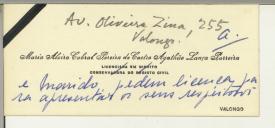 Av. Oliveira Zina, 255
Valongo.
Maria Alcira Cabral Pereira de Castro Agatão Lança Parreira
LICENCIADA EM DIREITO
CONSERVADORA DO REGISTO CIVIL
e marido, pedem licença pa
ra apresentar os seus respeitos
VALONGO